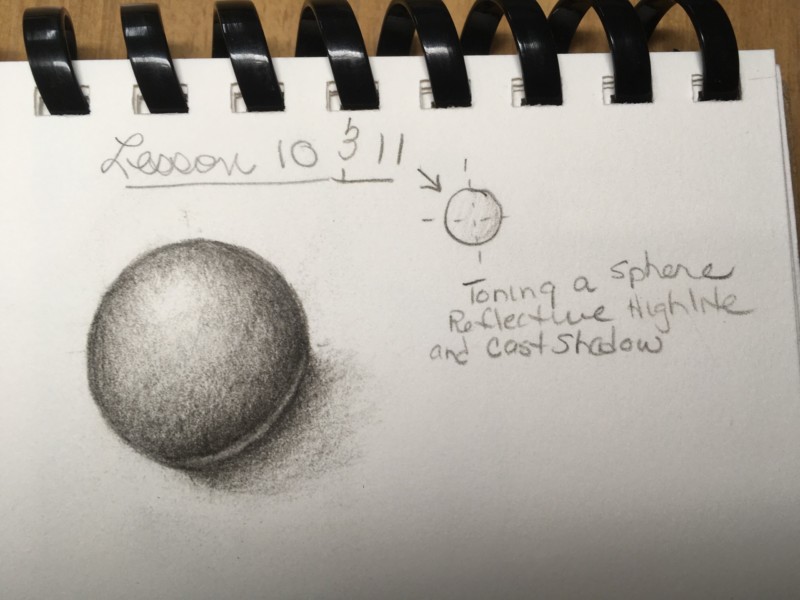 Lesson 10 & 11
Toning a sphere
Reflective Highlite
and Cast Shadow